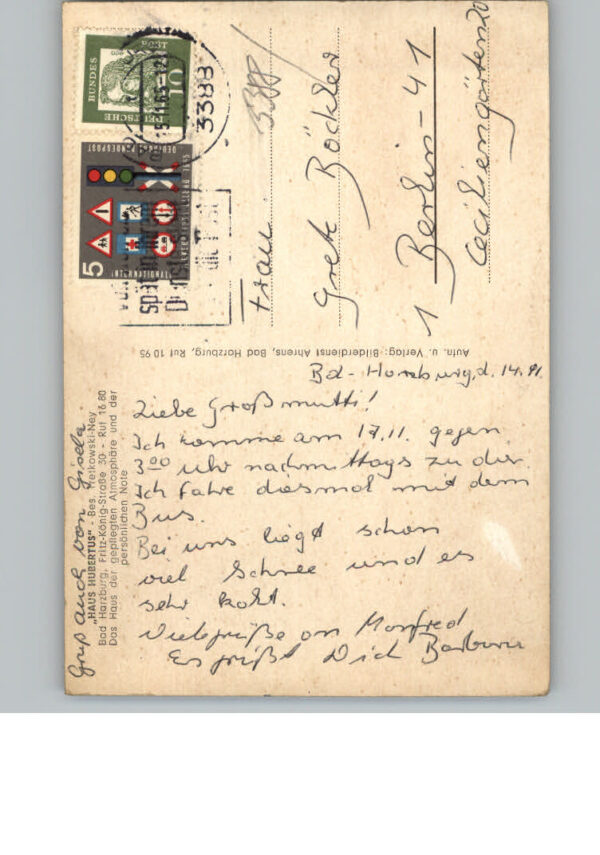 Bd-Harzburg, d. 14.11.
Liebe Großmutti!
Ich komme am 17.11. gegen
3⁰⁰ Uhr nachmittags zu dir.
Ich fahre diesmal mit dem
Bus.
Bei uns liegt schon
viel Schnee und es
sehr kalt.
Viele Grüße an Manfred
Es grüßt Dich Barbara
Gruß auch von Gisela.
„HAUS HUBERTUS" - Bes. Netkowski-Ney
Bad Harzburg, Fritz-König-Straße 30 - Ruf 16 80
Das Haus der gepflegten Atmosphäre und der
persönlichen Note
Aufn. u. Verlag: Bilderdienst Ahrens, Bad Harzburg, Ruf 10 95
Frau
Grete Böckler
1 Berlin-41
Ceciliengärten 20
3388
DEUTSCHE
BUNDES
POST
10
3388
DEUTSCHE BUNDESPOST
5